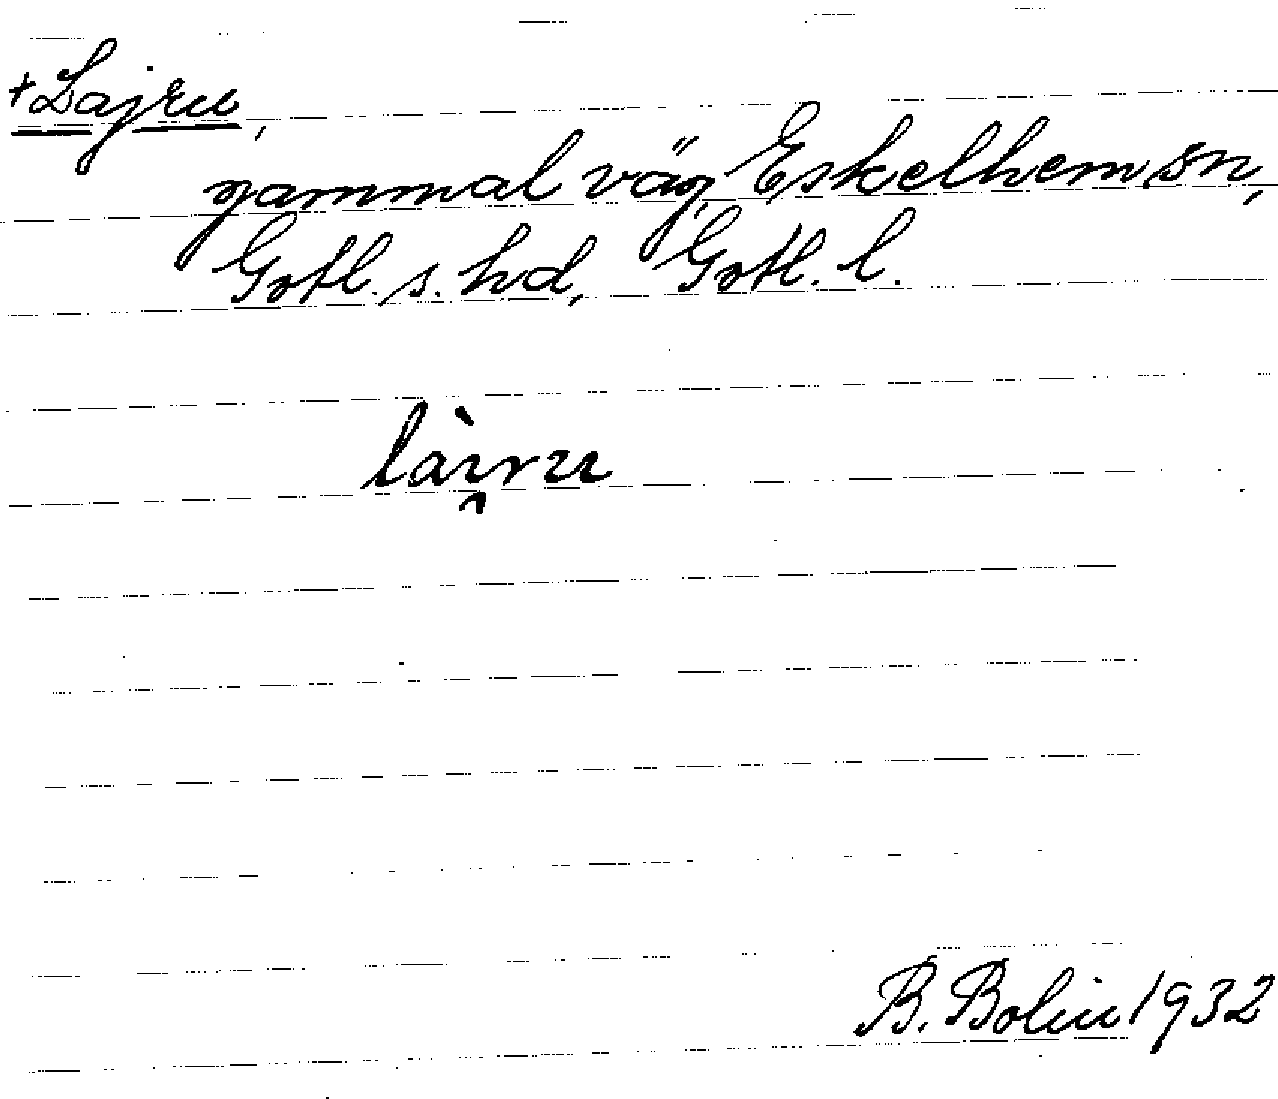 +Lajru,
gammal väg, Eskelhem sn,
Gotl. s. hd, Gotl. l.
làı̯ru
B. Bolin 1932